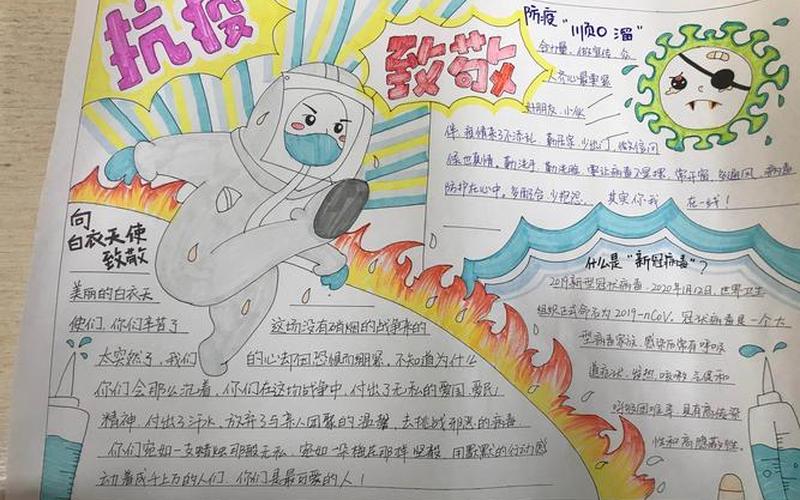 抗疫
致敬
防疫"顺口溜"
合力量，做宣传，众
人齐心最重要
好朋友，小伙
伴，疫情来了不添乱，勤在家，少出门，做
保也真情。勤洗手，勤洗脸，要让病毒不
防护在心中，多配合，少抱怨。其实你我
在一线！
什么是"新冠病毒"？
2019新型冠状病毒，2020年1月12日，世界卫生
组织正式命名为2019-nCoV。冠状病毒是一个大
型病毒家族，感染后常有呼吸
道症状、发热、咳嗽、气促和
呼吸困难等，具有高传染
性和高隐蔽性。
向
白衣天使
致敬
美丽的白衣天
使们，你们辛苦了
这场没有硝烟的战争来的
太突然了，我们的心却因恐惧而绷紧，不知道为什么
你们会那么沉着，你们在这场战争中，付出了无私的爱国，爱民
精神，付出了汗水，放弃了与亲人团聚的温馨，去挑战邪恶的病毒
你们宛如一支蜡烛那般无私，宛如一朵梅花那样坚毅，用默默的行动感
动着成千上万的人们，你们是最可爱的人！